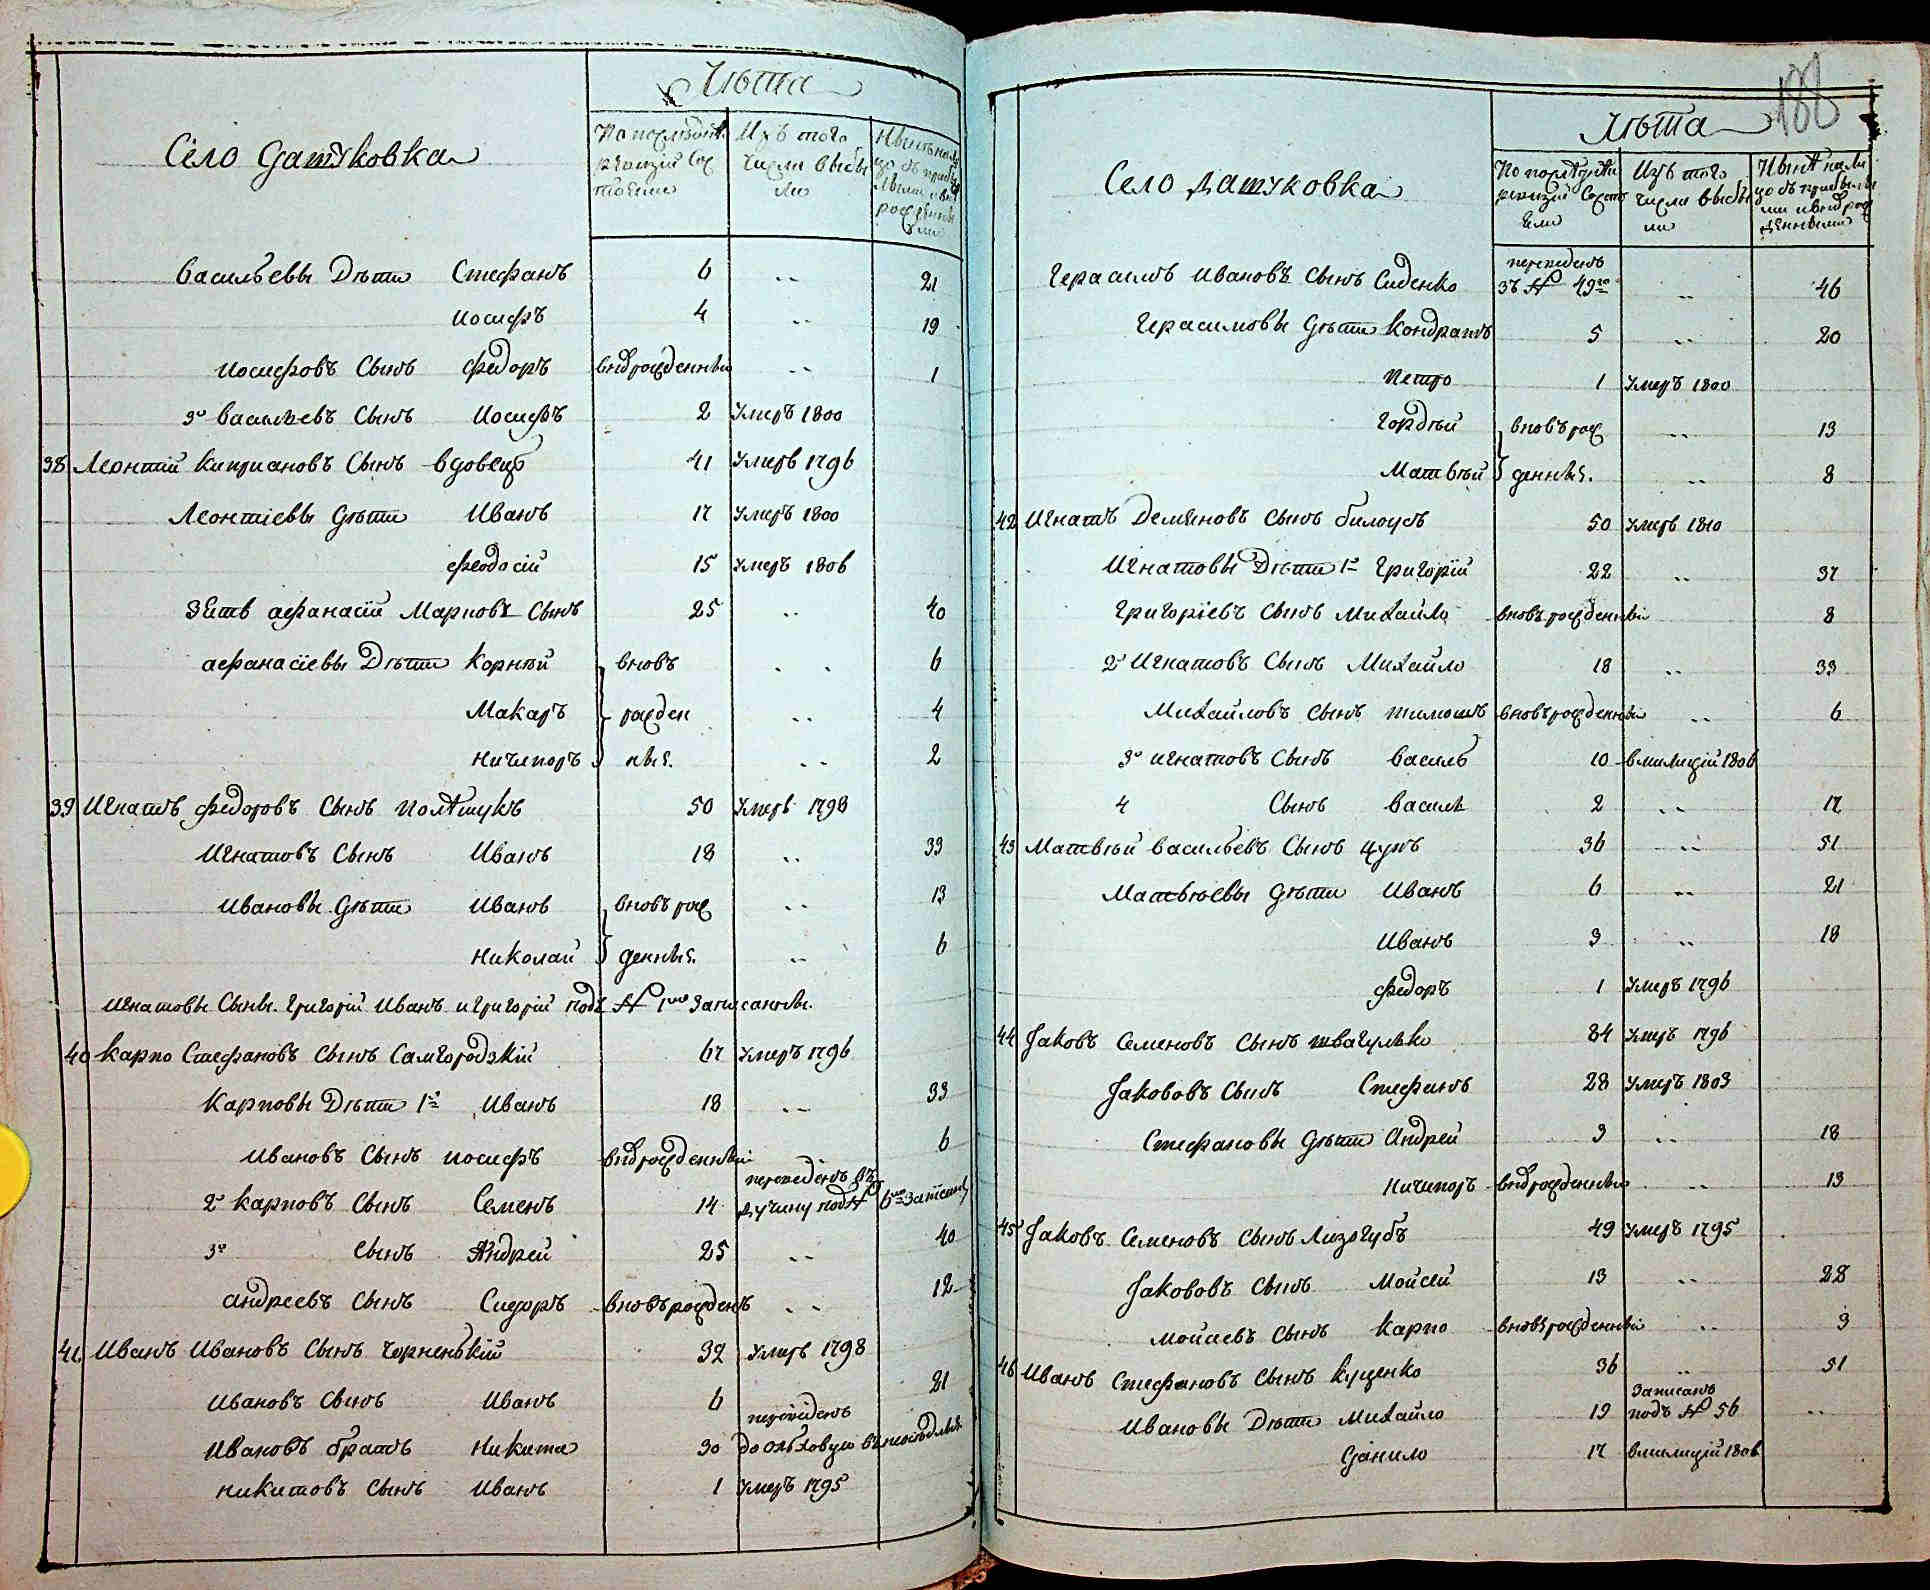 Лѣта
Село Дашуковка
По послѣдней ревизiи состояли
Изъ того числа выбыли
Нынѣ на лицо съ прибылыми и вновь рожденными
Васильевы Дѣти Стефанъ 6 .. 21
Иосифъ 4 .. 19
Иосифовъ Сынъ Федоръ вновьрожденный .. 1
3й Васильевъ Сынъ Иосифъ 2 умеръ 1800
38 Леонтiй Киприановъ Сынъ вдовецъ 41 умеръ 1796
Леонтiевы дѣти Иванъ 17 умеръ 1800
Феодосiй 15 умеръ 1806
Зять Афанасiй Марковъ Сынъ 25 .. 40
Афанасiевы Дѣти Корнѣй вновь .. 6
Макаръ рожден .. 4
Ничипоръ ныя. .. 2
39 Игнатъ Федоровъ Сынъ Полѣщукъ 50 умеръ 1798
Игнатовъ Сынъ Иванъ 18 .. 33
Ивановы дѣти Иванъ вновь рож .. 13
Николай денныя. .. 6
Игнатовы Сыны Григорiй Иванъ и Григорiй подъ № 1мъ Записаны.
40 Карпо Стефановъ Сынъ Самгородзкiй 67 умеръ 1796
Карповы Дѣти 1й Иванъ 18 .. 33
Ивановъ Сынъ Иосифъ вновьрожденный 6
2й Карповъ Сынъ Семенъ 14 переведенъ въ ручину подъ № 6мъ записанъ
3й Сынъ Андрей 25 .. 40
Андреевъ Сынъ Сидоръ вновьрожденъ .. 12
41 Иванъ Ивановъ Сынъ Чорненькiй 32 умеръ 1798
Ивановъ Сынъ Иванъ 6 21
Ивановъ братъ Никита 30 переведенъ до Ольховую
Никитовъ Сынъ Иванъ 1 умеръ 1795
188
Лѣта
Село Дашуковка
По послѣдней ревизiи состояли
Изъ того числа выбыли
Нынѣ на лицо съ прибылыми и вновь рожденными
Герасимъ Ивановъ Сынъ Сиденко переведенъ зъ № 49го .. 46
Герасимовы дѣти Кондратъ 5 .. 20
Петро 1 умеръ 1800
Гордѣй вновь рож .. 13
Матвѣй денныя. .. 8
42 Игнатъ Демяновъ Сынъ Билоусъ 50 умеръ 1810
Игнатовы Дѣти 1й Григорiй 22 .. 37
Григорiевъ Сынъ Михайло вновьрожденный 8
2й Игнатовъ Сынъ Михайло 18 .. 33
Михайловъ Сынъ Тимошъ вновьрожденный .. 6
3й Игнатовъ Сынъ Василь 10 в милицiй 1806
4 Сынъ Василь 2 .. 17
43 Матвѣй Васильевъ Сынъ Цупъ 36 .. 51
Матвѣевы дѣти Иванъ 6 .. 21
Иванъ 3 .. 18
Федоръ 1 умеръ 1796
44 Яковъ Семеновъ Сынъ Швагулько 84 умеръ 1796
Якововъ Сынъ Стефанъ 28 умеръ 1803
Стефановы дѣти Андрей 3 .. 18
Ничипоръ вновьрожденный .. 13
45 Яковъ Семеновъ Сынъ Лизогубъ 49 умеръ 1795
Якововъ Сынъ Мойсей 13 .. 28
Мойсиевъ Сынъ Карпо вновьрожденный .. 3
46 Иванъ Стефановъ Сынъ Куценко 36 .. 51
Ивановы Дѣти Михайло 19 Записанъ подъ № 56 ..
Данило 17 в милицiй 1806